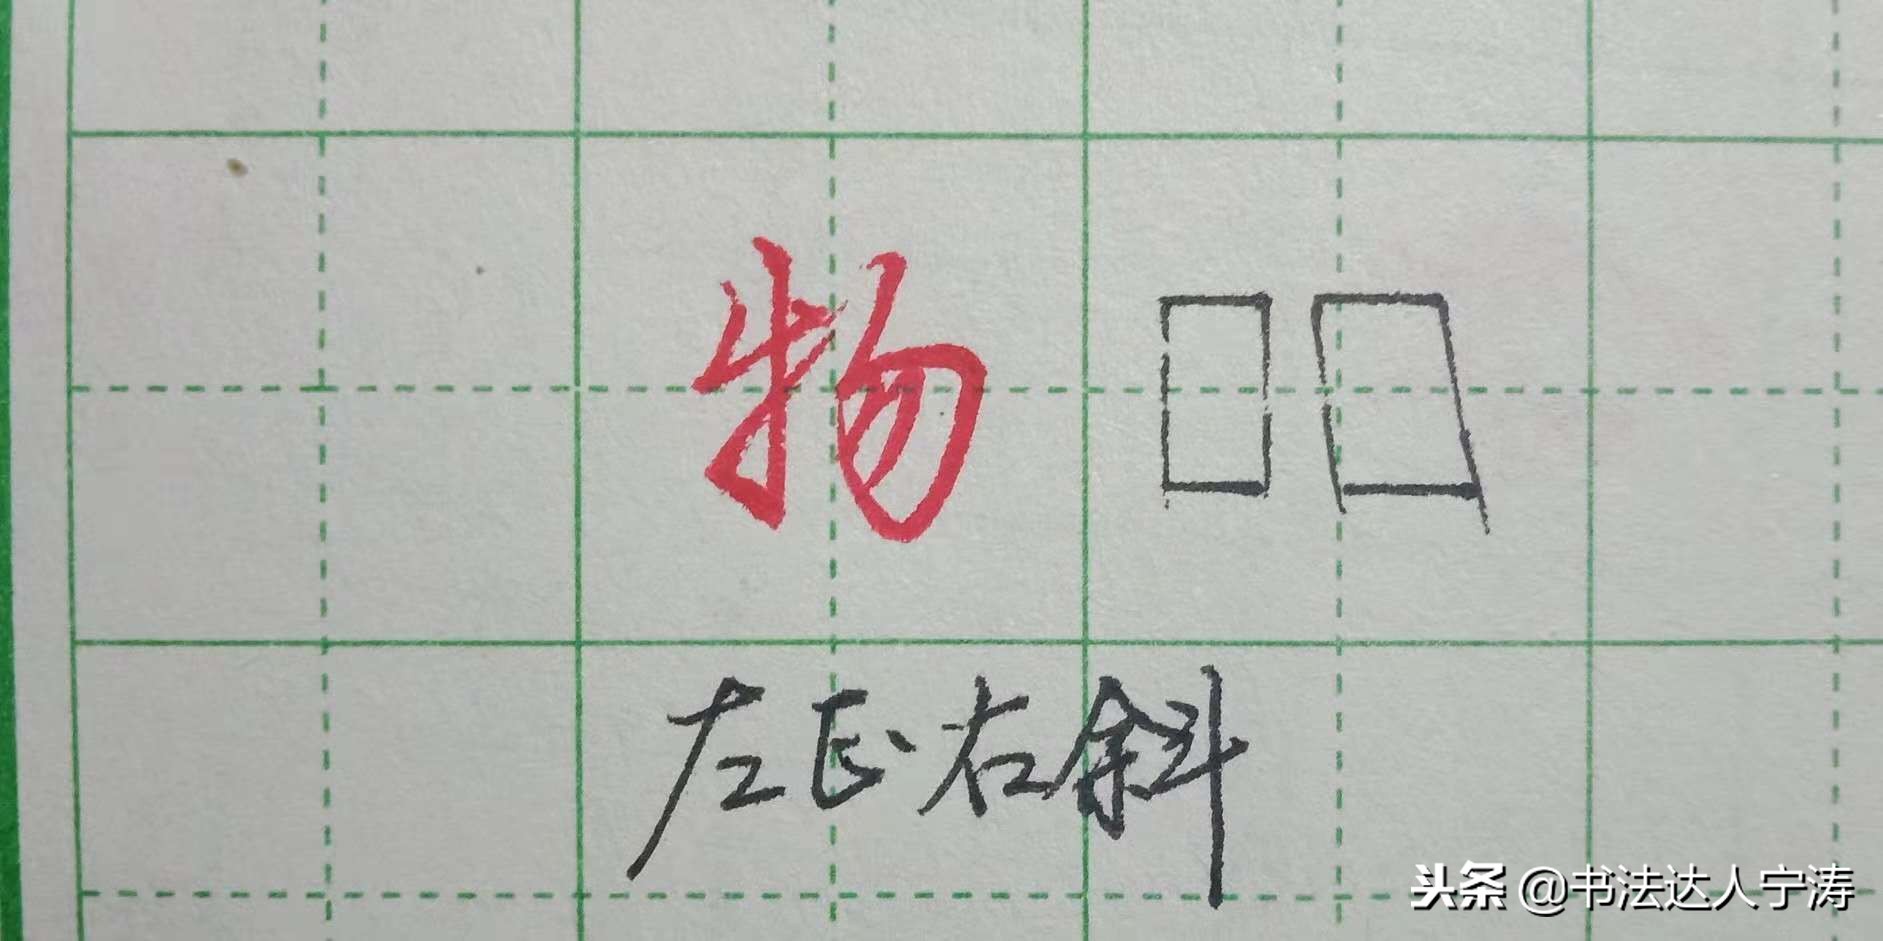 物
左正右斜
头条 @书法达人宁涛